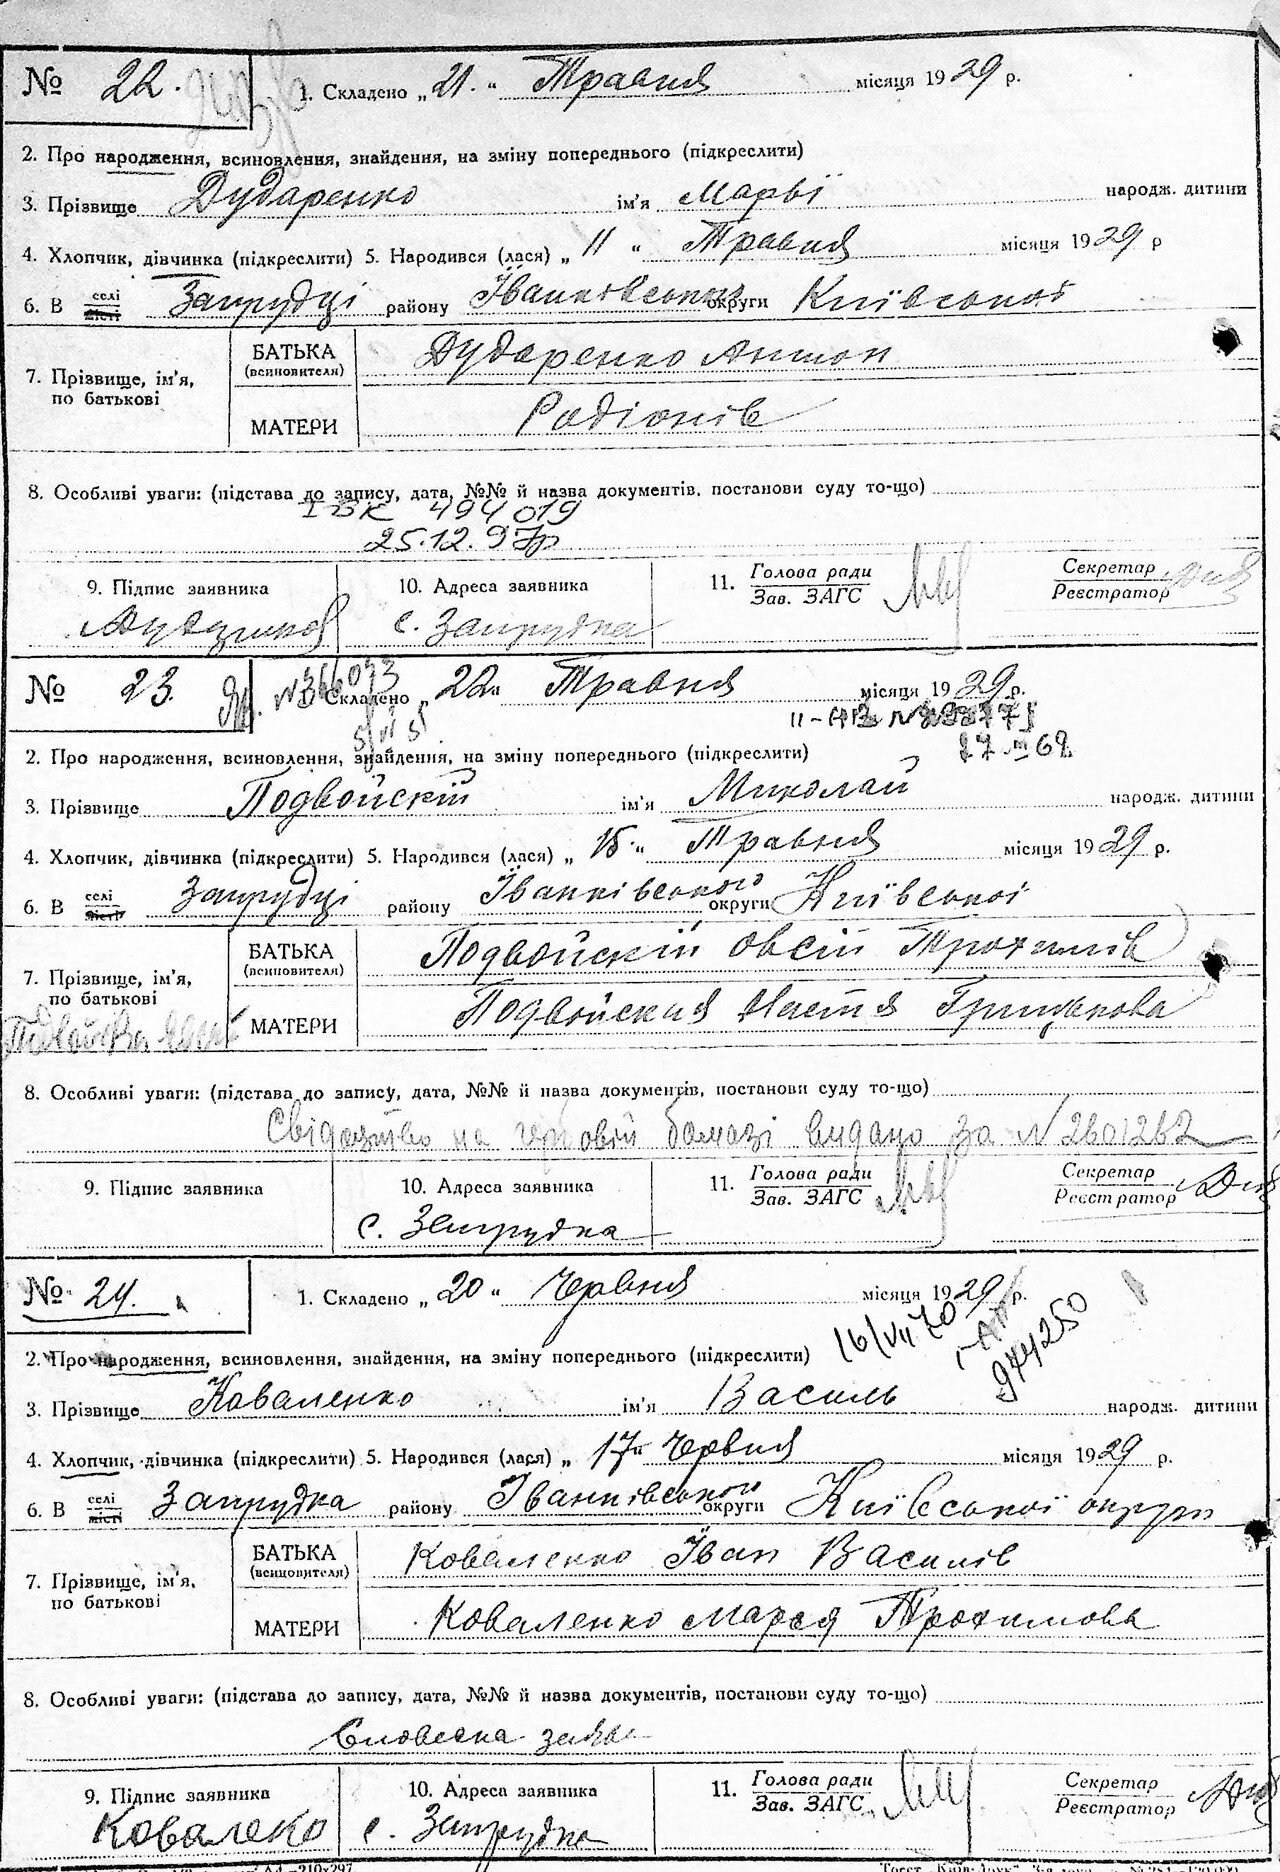 № 22. 1. Складено „21.“ Травня місяця 1929 р.
2. Про народження, всиновлення, знайдення, на зміну попереднього (підкреслити)
3. Прізвище Дударенко ім'я Марві народж. дитини
4. Хлопчик, дівчинка (підкреслити) 5. Народився (лася) „11“ Травня місяця 1929 р
6. В селі місті Запрудці району Іванківського округи Київської
7. Прізвище, ім'я, по батькові
БАТЬКА (всиновителя) Дударенко Антон
МАТЕРИ Родіонів
8. Особливі уваги: (підстава до запису, дата, №№ й назва документів, постанови суду то-що)
І БК 494019
25.12.97р
9. Підпис заявника 10. Адреса заявника 11. Голова ради Зав. ЗАГС Секретар Реєстратор
с. Запрудка
№ 23. №366033 1. Складено „22“ Травня місяця 1929 р.
27 III 62
2. Про народження, всиновлення, знайдення, на зміну попереднього (підкреслити)
3. Прізвище Подвойскій ім'я Миколай народж. дитини
4. Хлопчик, дівчинка (підкреслити) 5. Народився (лася) „15“ Травня місяця 1929 р.
6. В селі місті Запрудці району Іванківського округи Київської
7. Прізвище, ім'я, по батькові
БАТЬКА (всиновителя) Подвойскій Овсій Трохимів
МАТЕРИ Подвойская Настя Грицькова
8. Особливі уваги: (підстава до запису, дата, №№ й назва документів, постанови суду то-що)
Свідоцтво на гербовій бомазі видано за N 2601262
9. Підпис заявника 10. Адреса заявника 11. Голова ради Зав. ЗАГС Секретар Реєстратор
с. Запрудка
№ 24. 1. Складено „20“ Червня місяця 1929 р.
16/VII 70
944250
2. Про народження, всиновлення, знайдення, на зміну попереднього (підкреслити)
3. Прізвище Коваленко ім'я Василь народж. дитини
4. Хлопчик, дівчинка (підкреслити) 5. Народився (лася) „17“ Червня місяця 1929 р.
6. В селі місті Запрудка району Іванківського округи Київської округи
7. Прізвище, ім'я, по батькові
БАТЬКА (всиновителя) Коваленко Іван Василів
МАТЕРИ Коваленко Марія Трохимова
8. Особливі уваги: (підстава до запису, дата, №№ й назва документів, постанови суду то-що)
Словесна заява
9. Підпис заявника 10. Адреса заявника 11. Голова ради Зав. ЗАГС Секретар Реєстратор
Ковалеко с. Запрудка